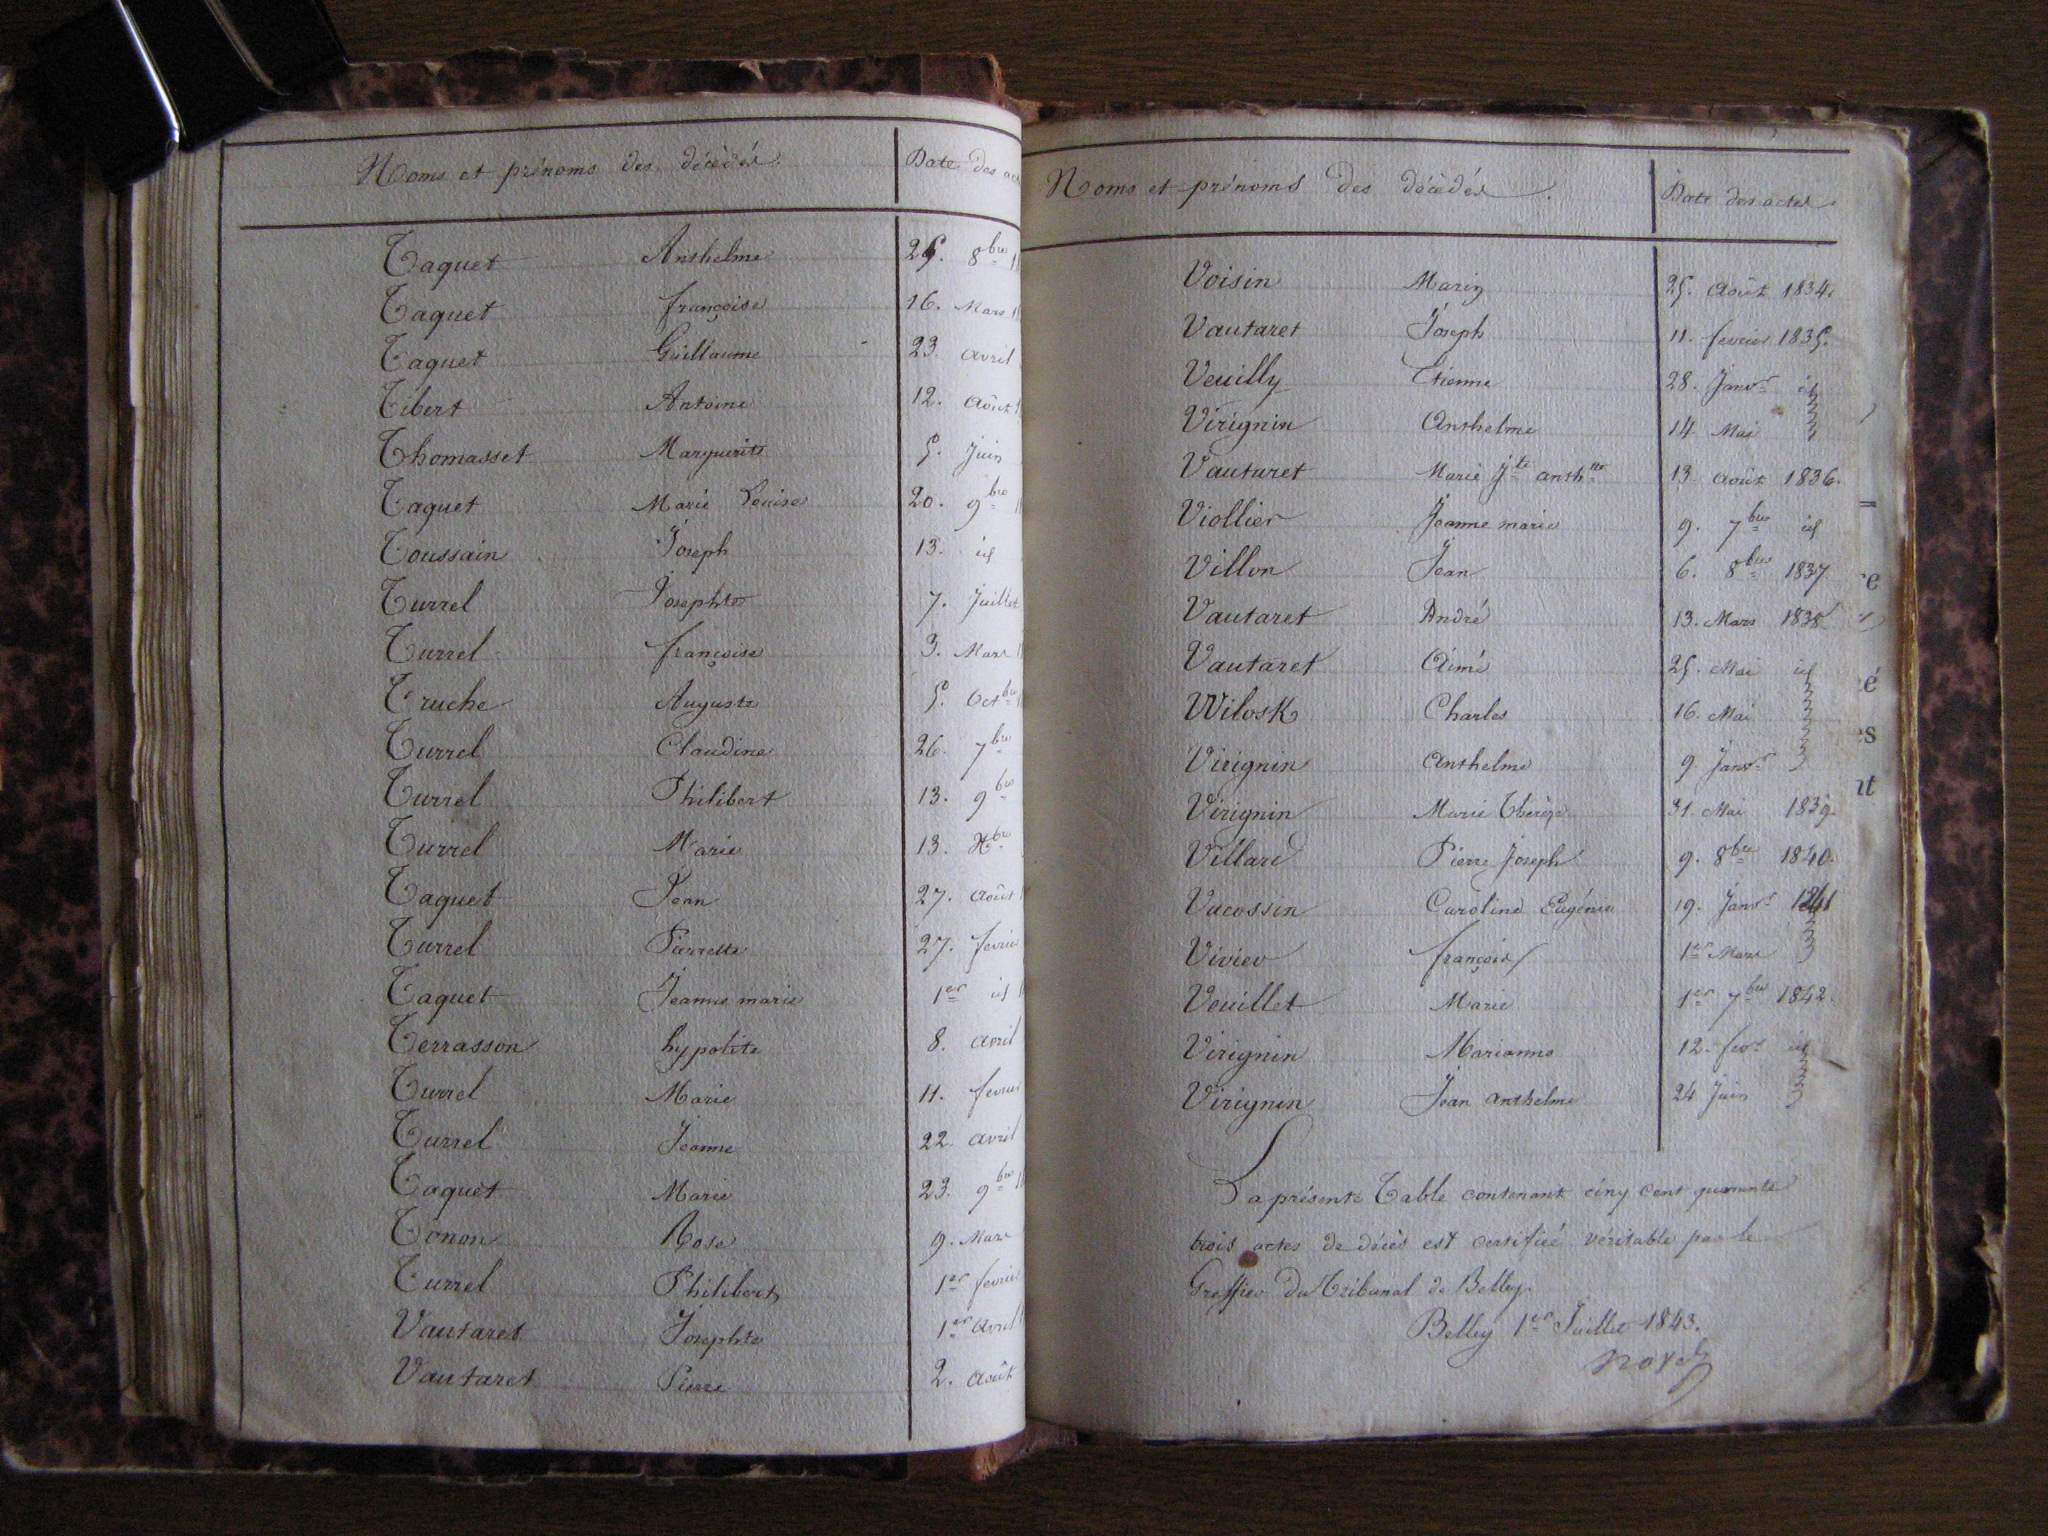 Noms et prénoms des décédés Date des act
Taquet Anthelme 25. 8bre
Taquet françoise 16. Mars
Taquet Guillaume 23. avril
Tibert Antoine 12. Août
Thomasset Marguerite 5. Juin
Taquet Marie Louise 20. 9bre
Toussain Joseph 13. id
Turrel Josephte 7. Juillet
Turrel françoise 3. Mars
Truche Auguste 5. Octbre
Turrel Claudine 26. 7bre
Turrel Philibert 13. 9bre
Turrel Marie 13. Xbre
Taquet Jean 27. Août
Turrel Pierrette 27. fevrie
Taquet Jeanne marie 1er id
Terrasson hypolite 8. avril
Turrel Marie 11. fevrier
Turrel Jeanne 22. avril
Taquet Marie 23. 9bre
Tonon Rose 9. Mars
Turrel Philibert 1er fevrier
Vautaret Josephte 1er Avril
Vautaret Pierre 2. Août
Noms et prénoms des décédés. Date des actes
Voisin Marie 25. Août 1834.
Vautaret Joseph 11. fevrier 1835.
Veuilly Etienne 28. Janvr id
Virignin Anthelme 14. Mai
Vautaret Marie Jte anthme 13. Août 1836.
Viollier Jeanne marie 9. 7bre id
Villon Jean 6. 8bre 1837
Vautaret André 13. Mars 1838
Vautaret Aimé 25. Mai id
Wilosk Charles 16. Mai
Virignin Anthelme 9. Janvr
Virignin Marie Thérèze 31. Mai 1839.
Villard Pierre Joseph 9. 8bre 1840.
Vacossin Caroline Eugénie 19. Janvr 1841
Vivier françois 1er Mars
Veuillet Marie 1er 7bre 1842.
Virignin Marianne 12. fevr id
Virignin Jean anthelme 24 Juin
La présente Table contenant cinq cent quarante
trois actes de décès est certifiée véritable par le
Greffier du Tribunal de Belley.
Belley 1er Juillet 1843.